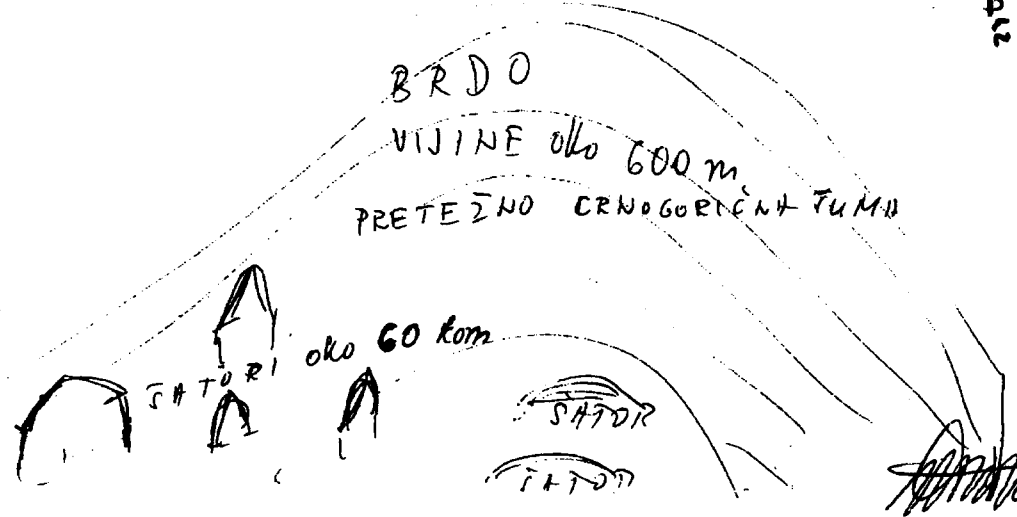 BRDO
VIJINE oko 600 m
PRETEŽNO CRNOGORIČNA ŠUMA
ŠATORI oko 60 kom
ŠATOR
ŠATOR